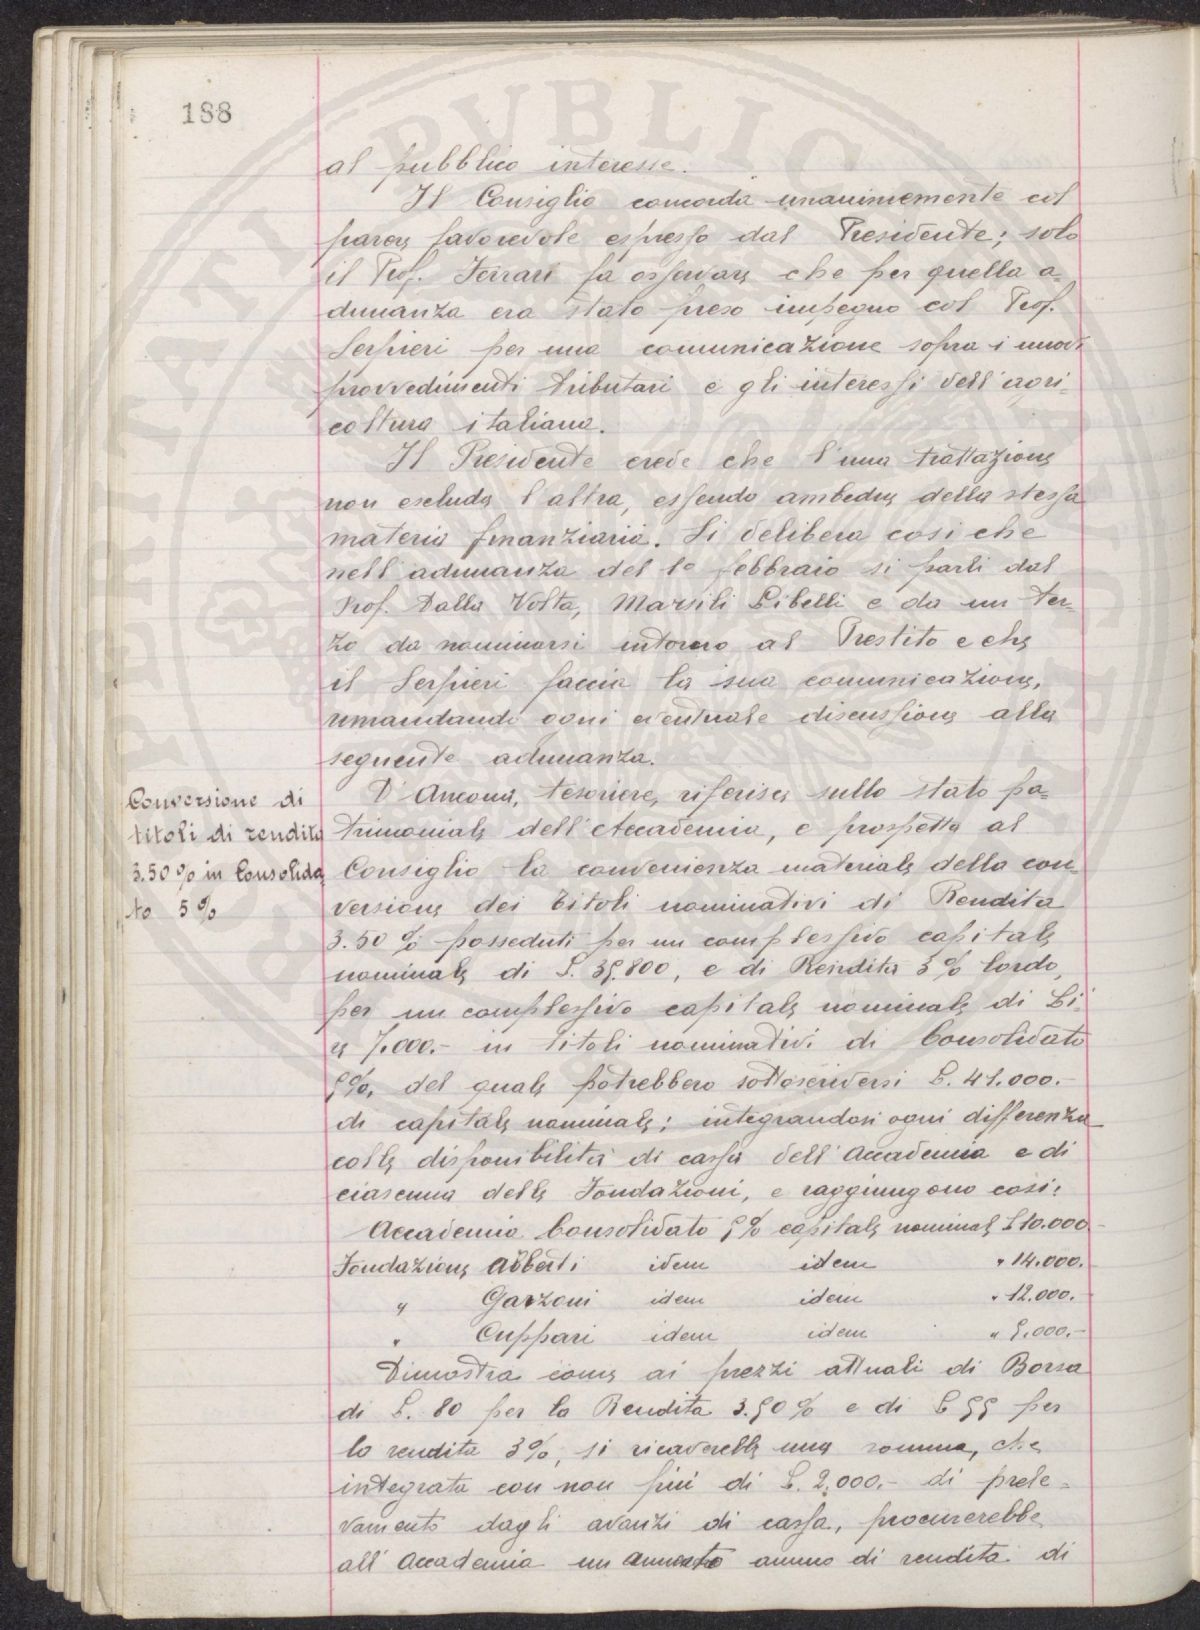 188
al pubblico interesse.
Il Consiglio concorda unanimemente col
parere favorevole espresso dal Presidente; solo
il Prof. Ferrari fa osservare che per quella a=
dunanza era stato preso impegno col Prof.
Serpieri per una comunicazione sopra i nuovi
provvedimenti tributari e gli interessi dell'agri-
coltura italiana.
Il Presidente crede che l'una trattazione
non escluda l'altra, essendo ambedue della stessa
materia finanziaria. Si delibera così che
nell'adunanza del 1o febbraio si parli dal
Prof. Dalla Volta, Marsili Libelli e da un ter-
zo da nominarsi intorno al Prestito e che
il Serpieri faccia la sua comunicazione,
rimandando ogni eventuale discussione alla
seguente adunanza.
Conversione di
titoli di rendita
3.50% in Consolida
to 5%
D'Ancona, tesoriere, riferisce sullo stato pa=
trimoniale dell'Accademia, e prospetta al
Consiglio la convenienza materiale della con-
versione dei titoli nominativi di Rendita
3.50% posseduti per un complessivo capitale
nominale di L. 35.800, e di Rendita 3% lordo,
per un complessivo capitale nominale di Li-
re 7.000.- in titoli nominativi di Consolidato
5%, del quale potrebbero sottoscriversi L. 41.000.-
di capitale nominale; integrandosi ogni differenza
colle disponibilità di cassa dell'Accademia e di
ciascuna delle Fondazioni, e raggiungono così:
Accademia Consolidato 5% capitale nominale L 10.000-
Fondazione Alberti idem idem " 14.000.
" Garzoni idem idem " 12.000.
" Cuppari idem idem " 5.000.-
Dimostra come ai prezzi attuali di Borsa
di L. 80 per la Rendita 3.50% e di L 55 per
la rendita 3%, si ricaverebbe una somma, che
integrata con non più di L. 2.000.- di prele=
vamento dagli avanzi di cassa, procurerebbe
all'Accademia un aumento annuo di rendita di